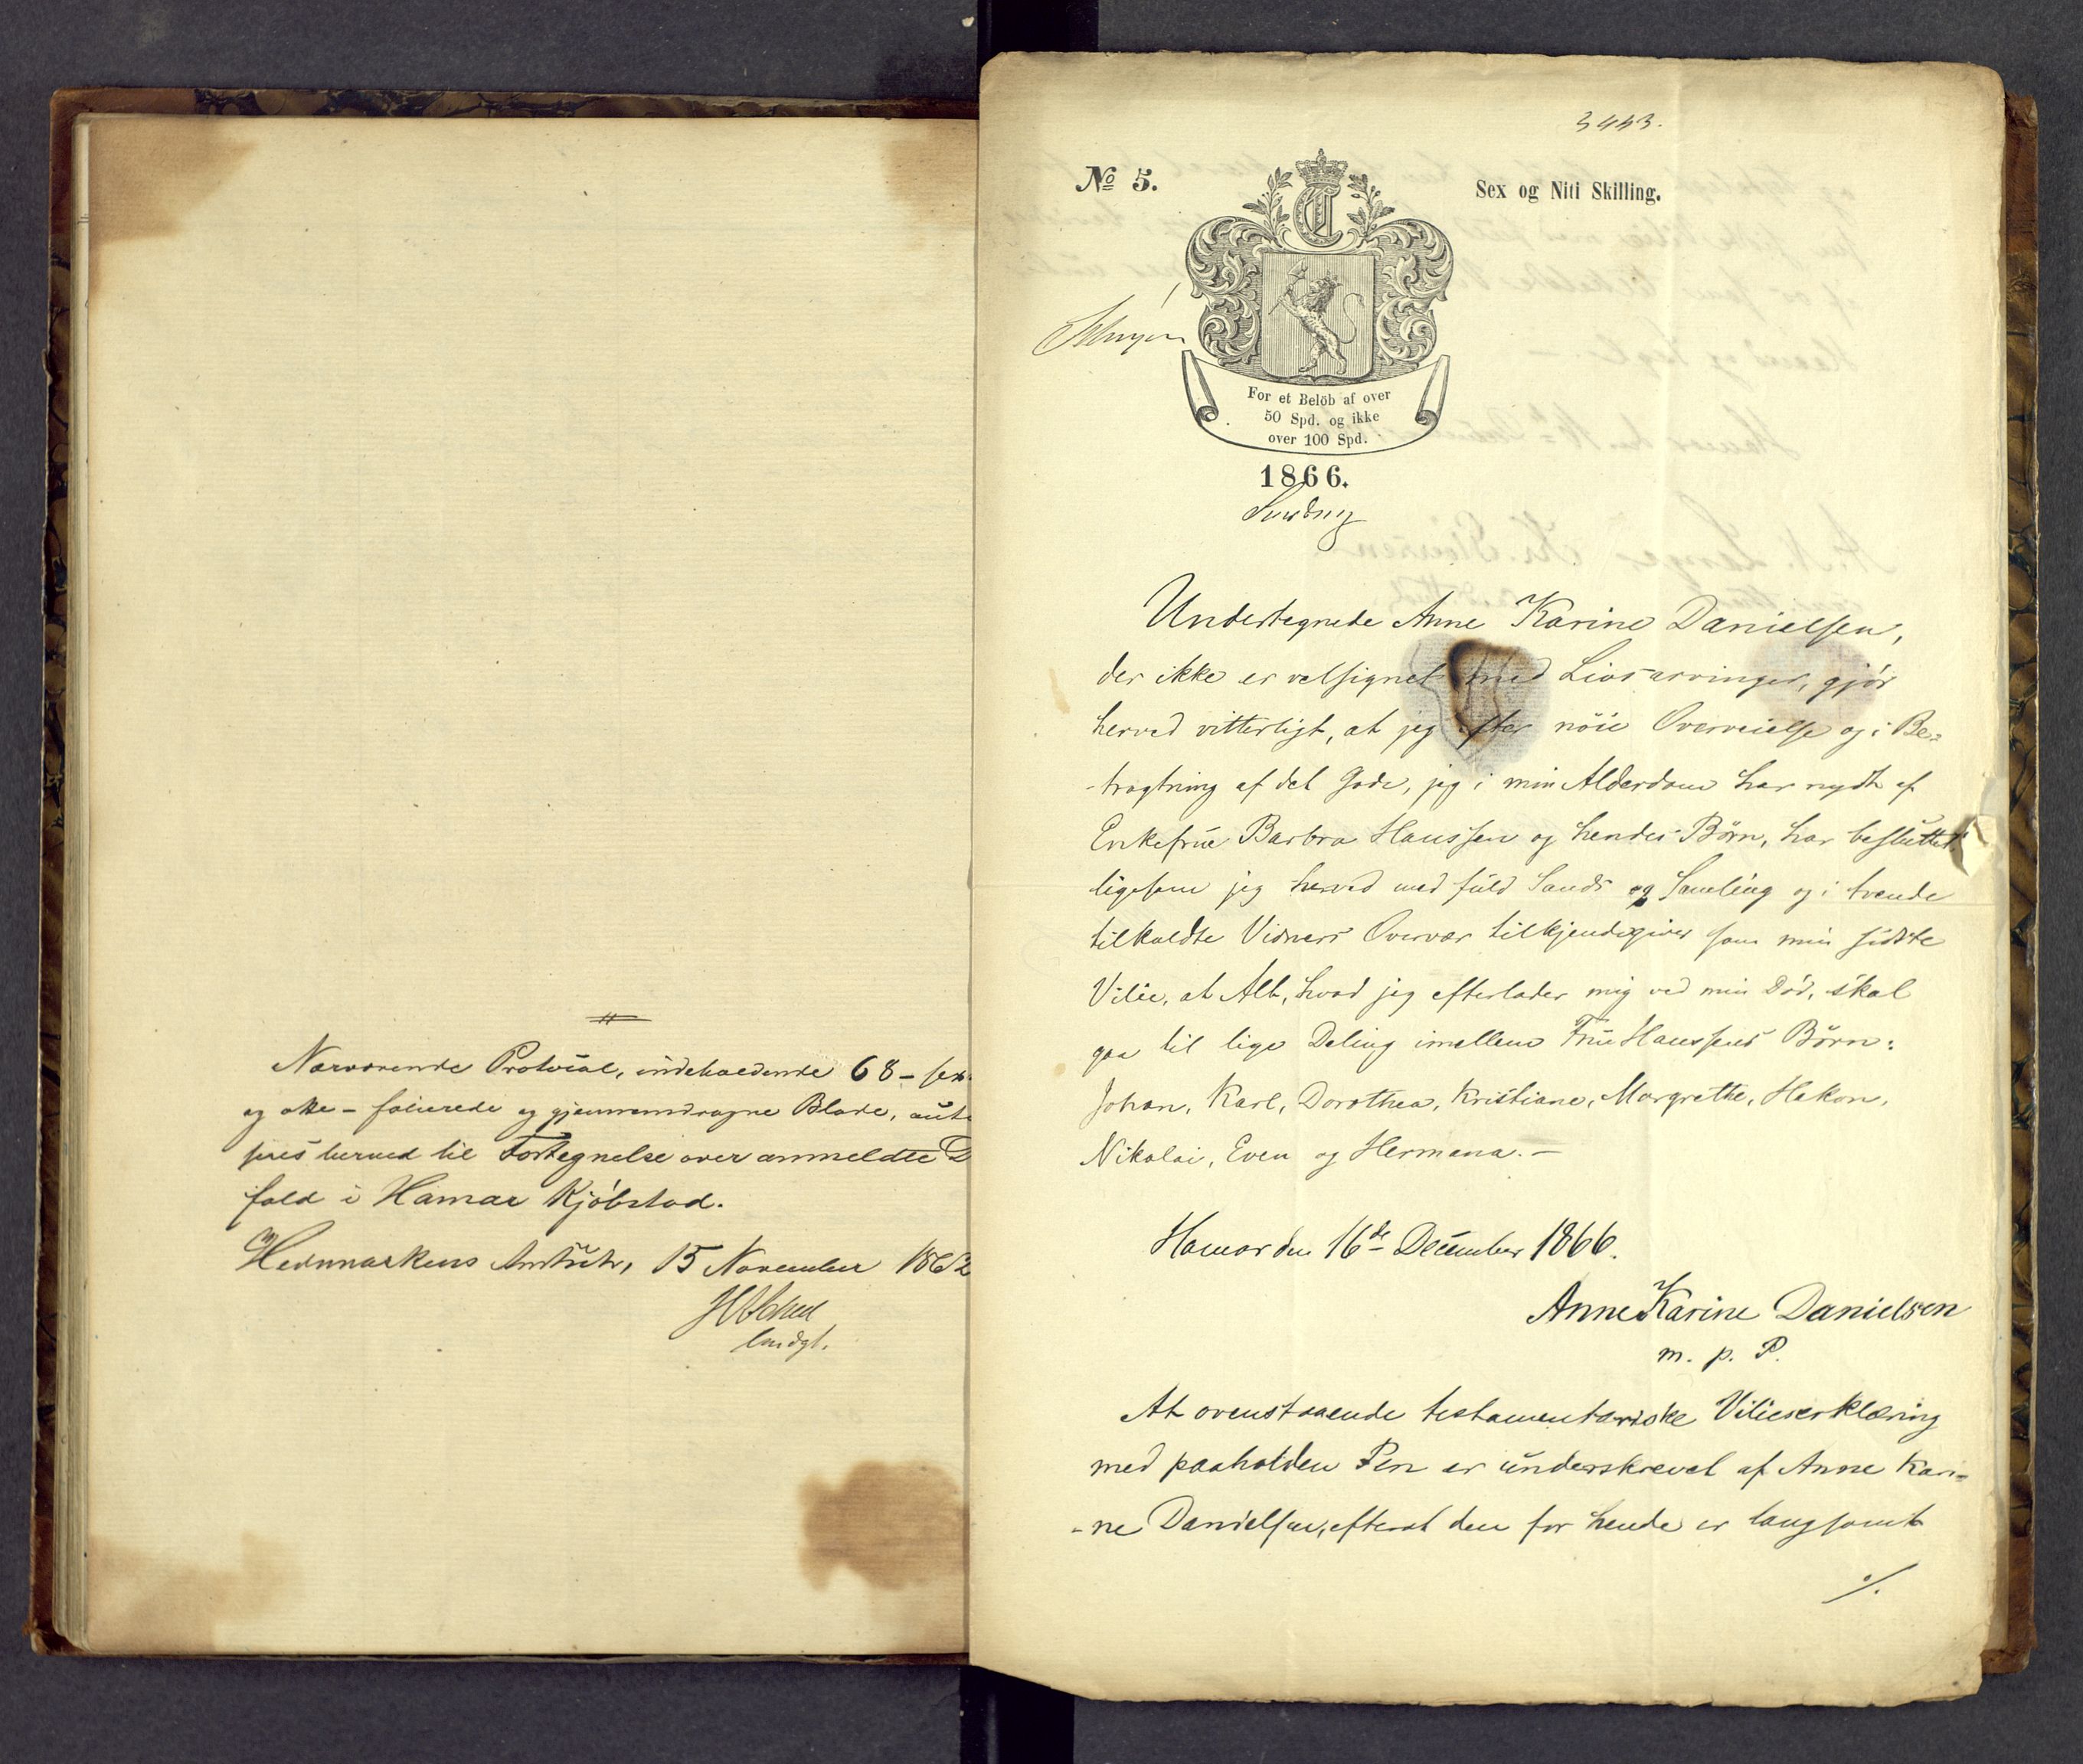 Nærværende Protocol, indeholdende 68 – sex
og otte – folierede og gjennemdragne Blade, auto
seres herved til Fortegnelse over anmeldte D
fald i Hamar Kjöbstad.
Hedemarkens Amt, 15 November 1862
const.
3443.
No 5.
Sex og Niti Skilling.
For et Belöb af over
50 Spd. og ikke
over 100 Spd.
1866.
Undertegnede Anne Karine Danielsen,
der ikke er velsignet med Livsarvinger, gjör
herved vitterligt, at jeg efter nöie Overveielse og i Be-
-tragtning af det Gode, jeg i min Alderdom har nydt af
Enkefrue Barbra Hanssen og hendes Börn, har besluttet
ligesom jeg herved med fuld Sands og Samling og i tvende
tilkaldte Vidners Overvær tilkjendegiver som min sidste
Vilie, at Alt, hvad jeg efterlader mig ved min Död, skal
gaa til lige Deling imellem Frue Hanssens Börn:
Johan, Karl, Dorothea, Kristiane, Margrethe, Hakon,
Nikolai, Even og Hermana. –
Hamar den 16de December 1866.
Anne Karine Danielsen
m. p. P.
At ovenstaaende testamentariske Vilieserklæring
med paaholden Pen er underskrevet af Anne Kari-
-ne Danielsen, efterat den for hende er langsomt
./.